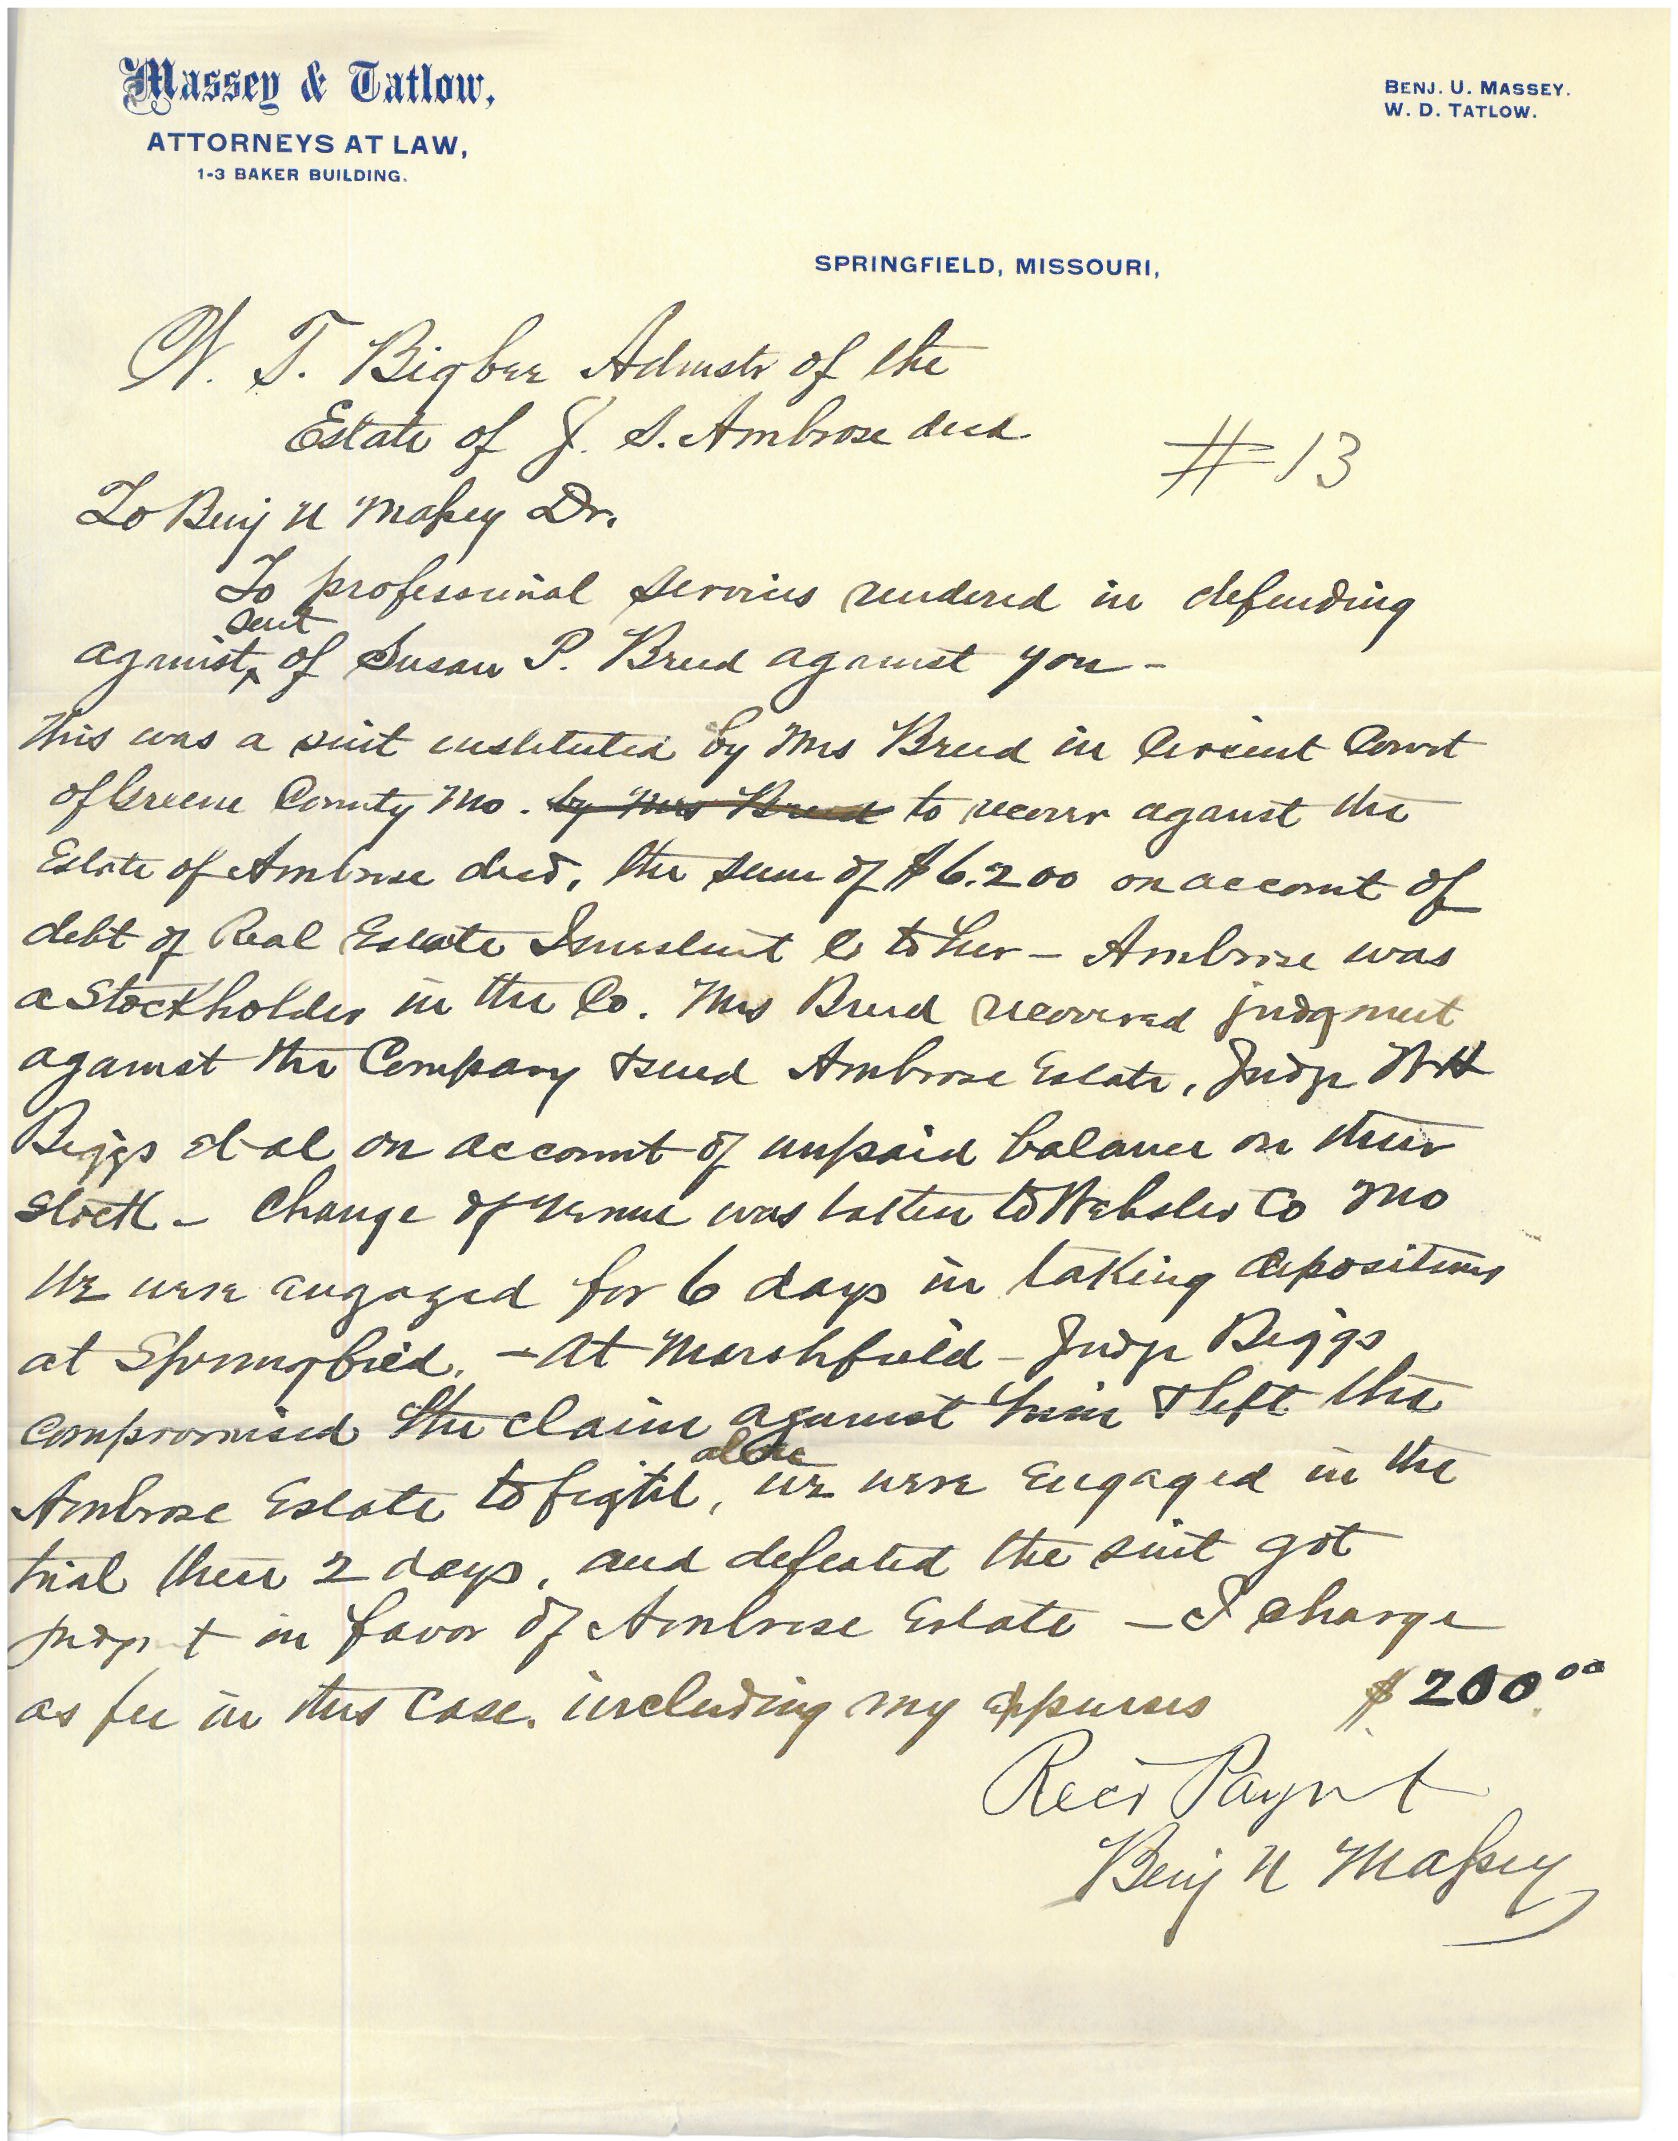 Massey & Tatlow,
ATTORNEYS AT LAW,
1-3 BAKER BUILDING.
BENJ. U. MASSEY.
W. D. TATLOW.
SPRINGFIELD, MISSOURI,
W. T. Bigbee Admstr of the
Estate of J. S. Ambrose decd
# 13
To Benj U Massey Dr.
To professional services rendered in defending
suit
against of Susan P. Breed against you -
This was a suit instituted by Mrs Breed in Circuit Court
of Greene County Mo. by Mrs Breed to recover against the
Estate of Ambrose decd, the sum of $6.200 on account of
debt of Real Estate Investment Co to her - Ambrose was
a Stockholder in the Co. Mrs Breed recovered judgment
against the Company & sued Ambrose Estate, Judge
Biggs et al on account of unpaid balance on their
stock - Change of venue was taken to Webster Co Mo
We were engaged for 6 days in taking depositions
at Springfield, - At Marshfield - Judge Biggs
compromised the claim against him & left the
alone
Ambrose Estate to fight, we were engaged in the
trial there 2 days, and defeated the suit got
judgt in favor of Ambrose Estate - I charge
as fee in this case, including my expenses $200.00
Recd Paymt
Benj U Massey